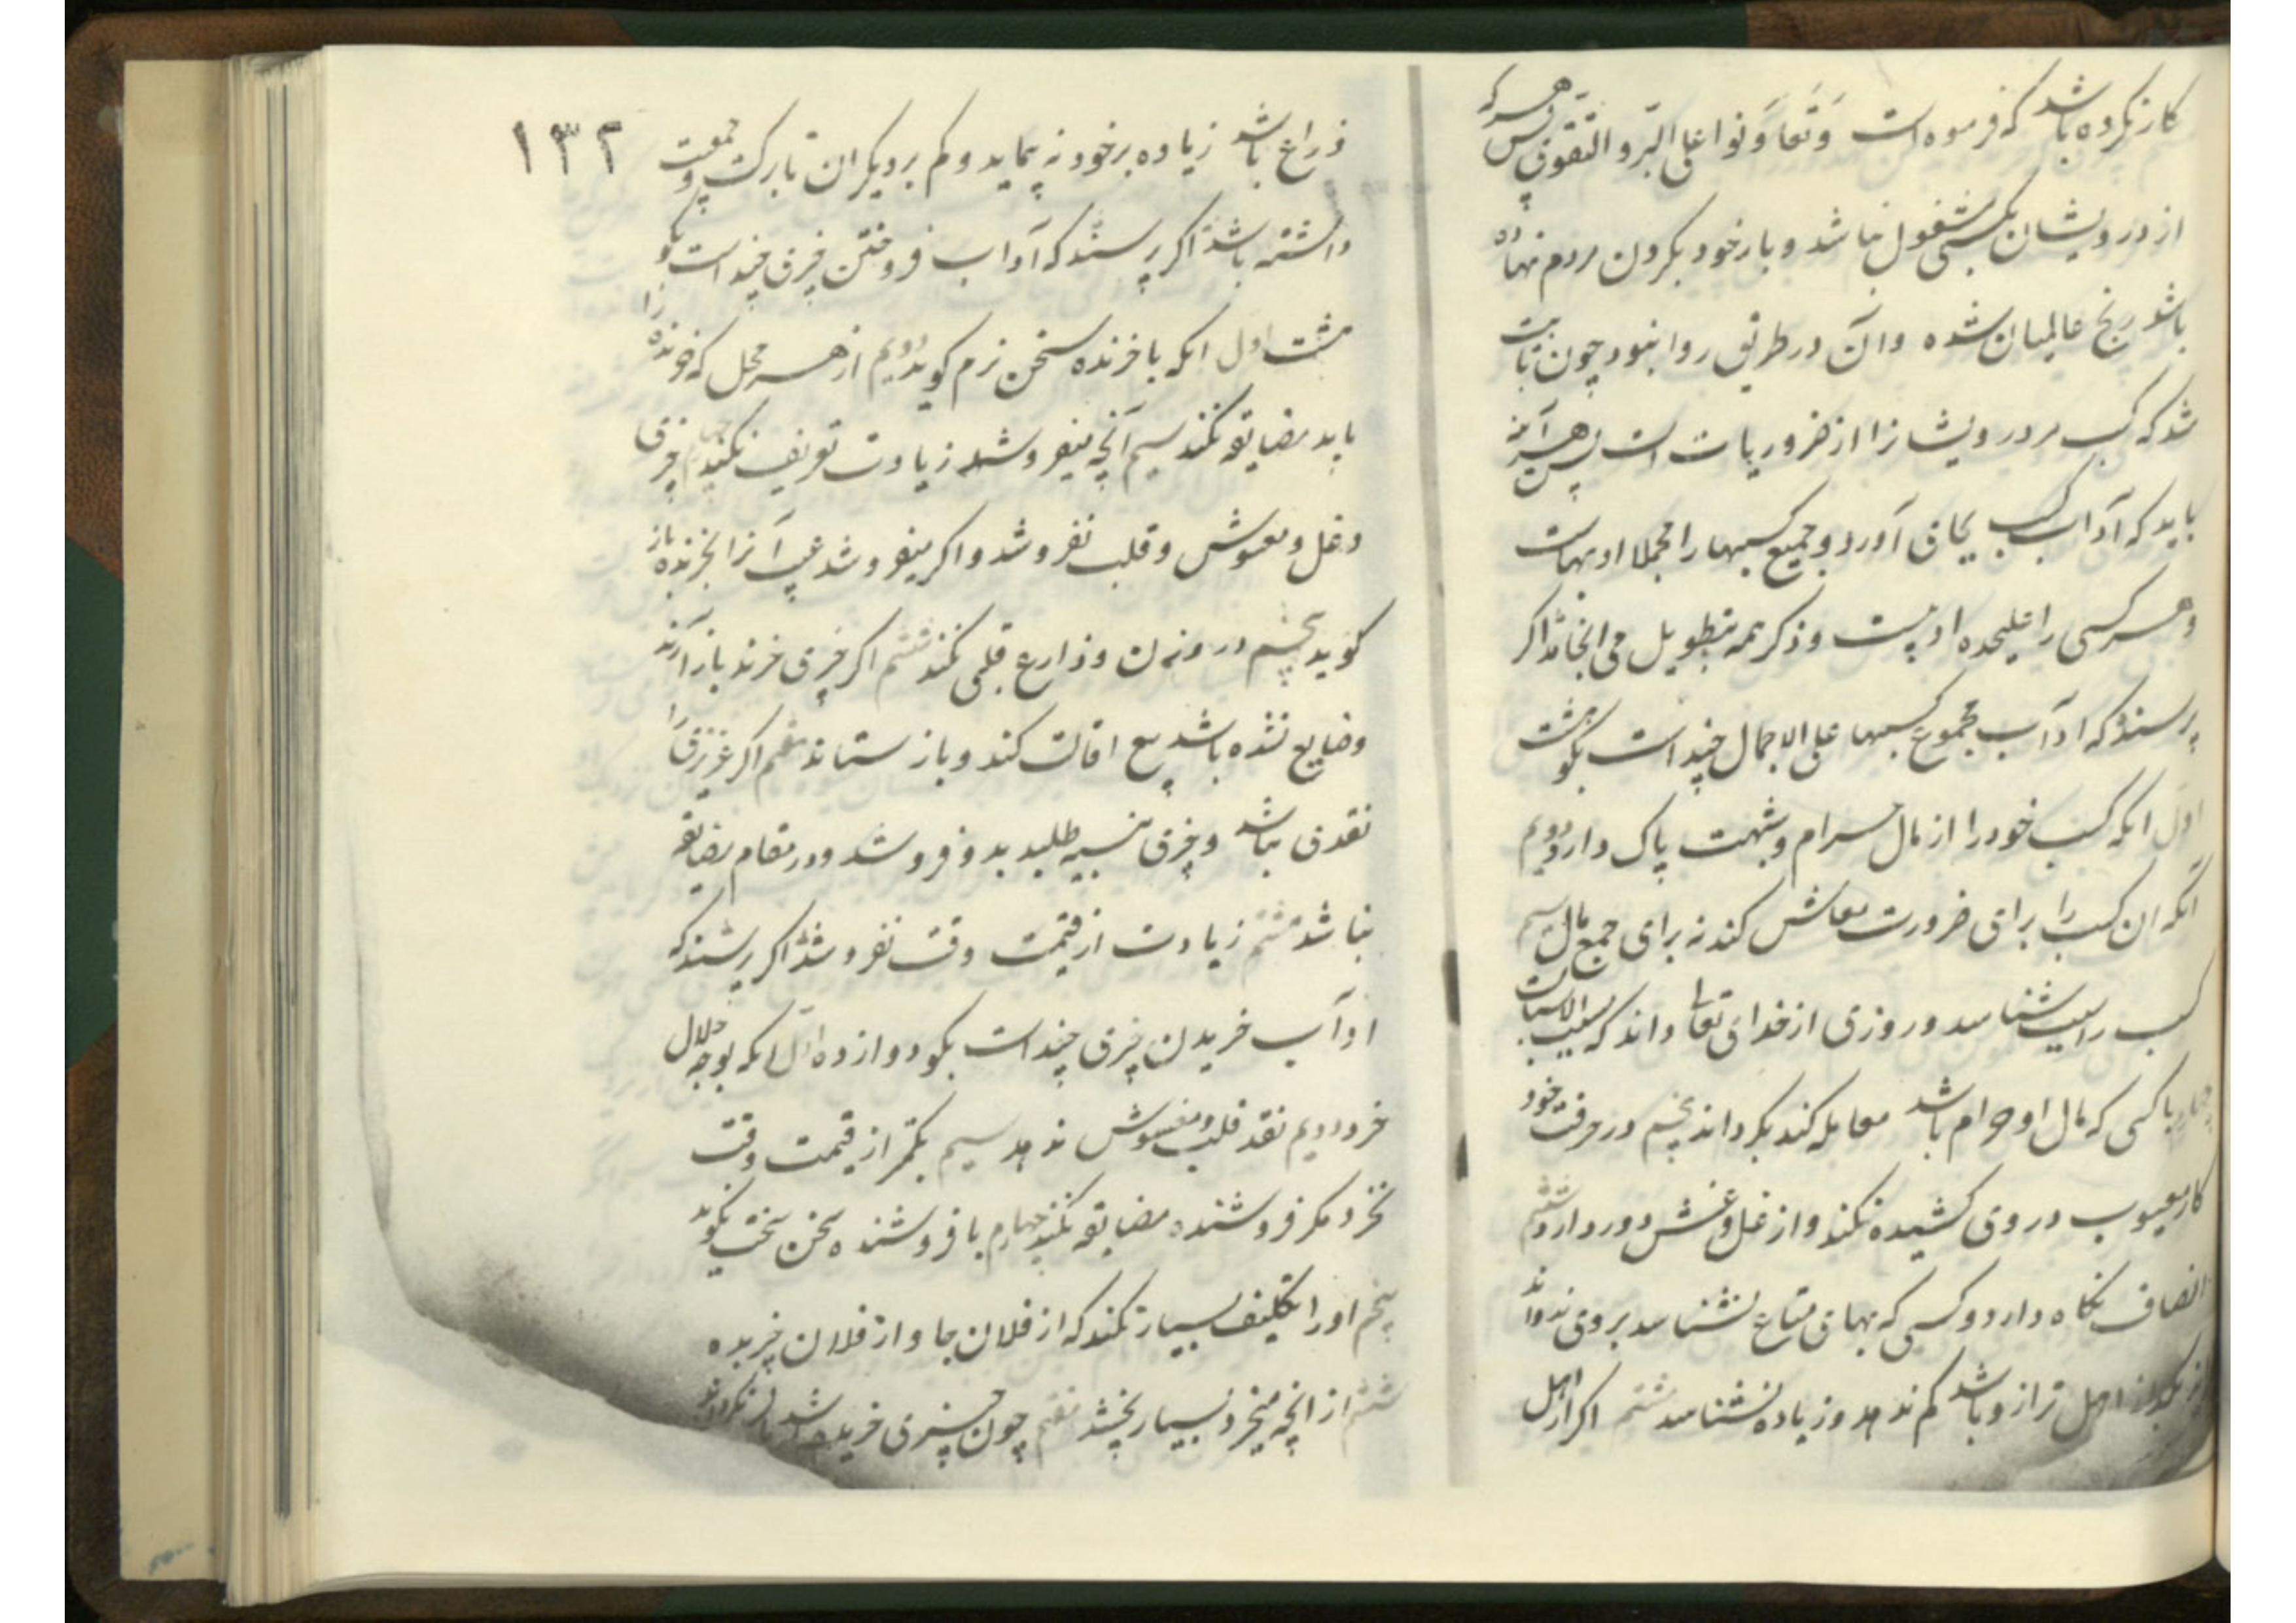 کار نکرده باشد که فرموده است وَتَعَاوَنوا علی البّر و التقوی پس هر که
از درویشان بکسبی مشغول نباشد و بار خود بکردن مردم نهاده
باشد و رنج عالمیان شده و آن در طریق روا نبود چون ثابت
شد که کسب مر درویشانرا از ضروریات است پس هر آینه
باید که آداب کسب بجای آورد و جمیع کسبها را مجملا ادبهاست
و هر کسی را علیحده ادبیست و ذکر همه بتطویل می انجامد اکر
پرسند که ادآب مجموع کسبها علی الاجمال چند است بکو هشت
اول انکه کسب خود را از مال حرام و شبهت پاک دارد دویم
آنکه ان کسب را برای ضرورت معاش کند نه برای جمع مال سیم
کسب را سبب شناسد و روزی از خدای تعالی داند که مسبب الاسباب
چهارم با کسی که مال او حرام باشد معامله کند بکرداند پنجم در حرفت خود
کار معیوب در روی کشیده نکند و از غل و غش دور دارد ششم
انصاف نکاه دارد و کسی که بهای متاع نشناسد بروی
از اهل ترازو باشد کم ندهد و زیاده نشناسد هشتم اکر از اهل
۱۳۲
ذراع باشد زیاده بر خود نه پیماید و کم بر دیکران تا برکت و جمعیت
داشته باشد اکر پرسند که آداب فروختن چیزی چند است بکو
هشت اول انکه با خرنده سخن نرم کوید دویم از هر محل که خرنده را
باید مضایقه نکند سیم آنچه میفروشد زیادت تعریف نکند چهارم چیزی
دغل و مغشوش و قلب نفروشد و اکر میفروشد عیب آنرا بخرنده باز
کوید پنجم در وزن و ذارع قلبی نکند ششم اکر چیزی خرند باز آرند
و ضایع نشده باشد بیع اقالت کند و باز ستاند هفتم اکر عزیزی را
نقدی نباشد و چیزی نسیه طلبد بدو فروشد و در مقام مضایقه
نباشد هشتم زیادت از قیمت وقت نفروشد اکر پرسند که
ادآب خریدن چیزی چند است بکو دوازده اول انکه بوجه حلال
خرد دویم نقد قلب و مغشوش ندهد سیم بکمتر از قیمت وقت
نخرد مکر فروشنده مضایقه نکند چهارم با فروشنده سخن سخت نکوید
پنجم او را تکلیف بسیار نکند که از فلان جا و از فلان خریده
ششم از انچه میخرد بسیار نچشد هفتم چون چیزی خریده باشد باز نکرداند